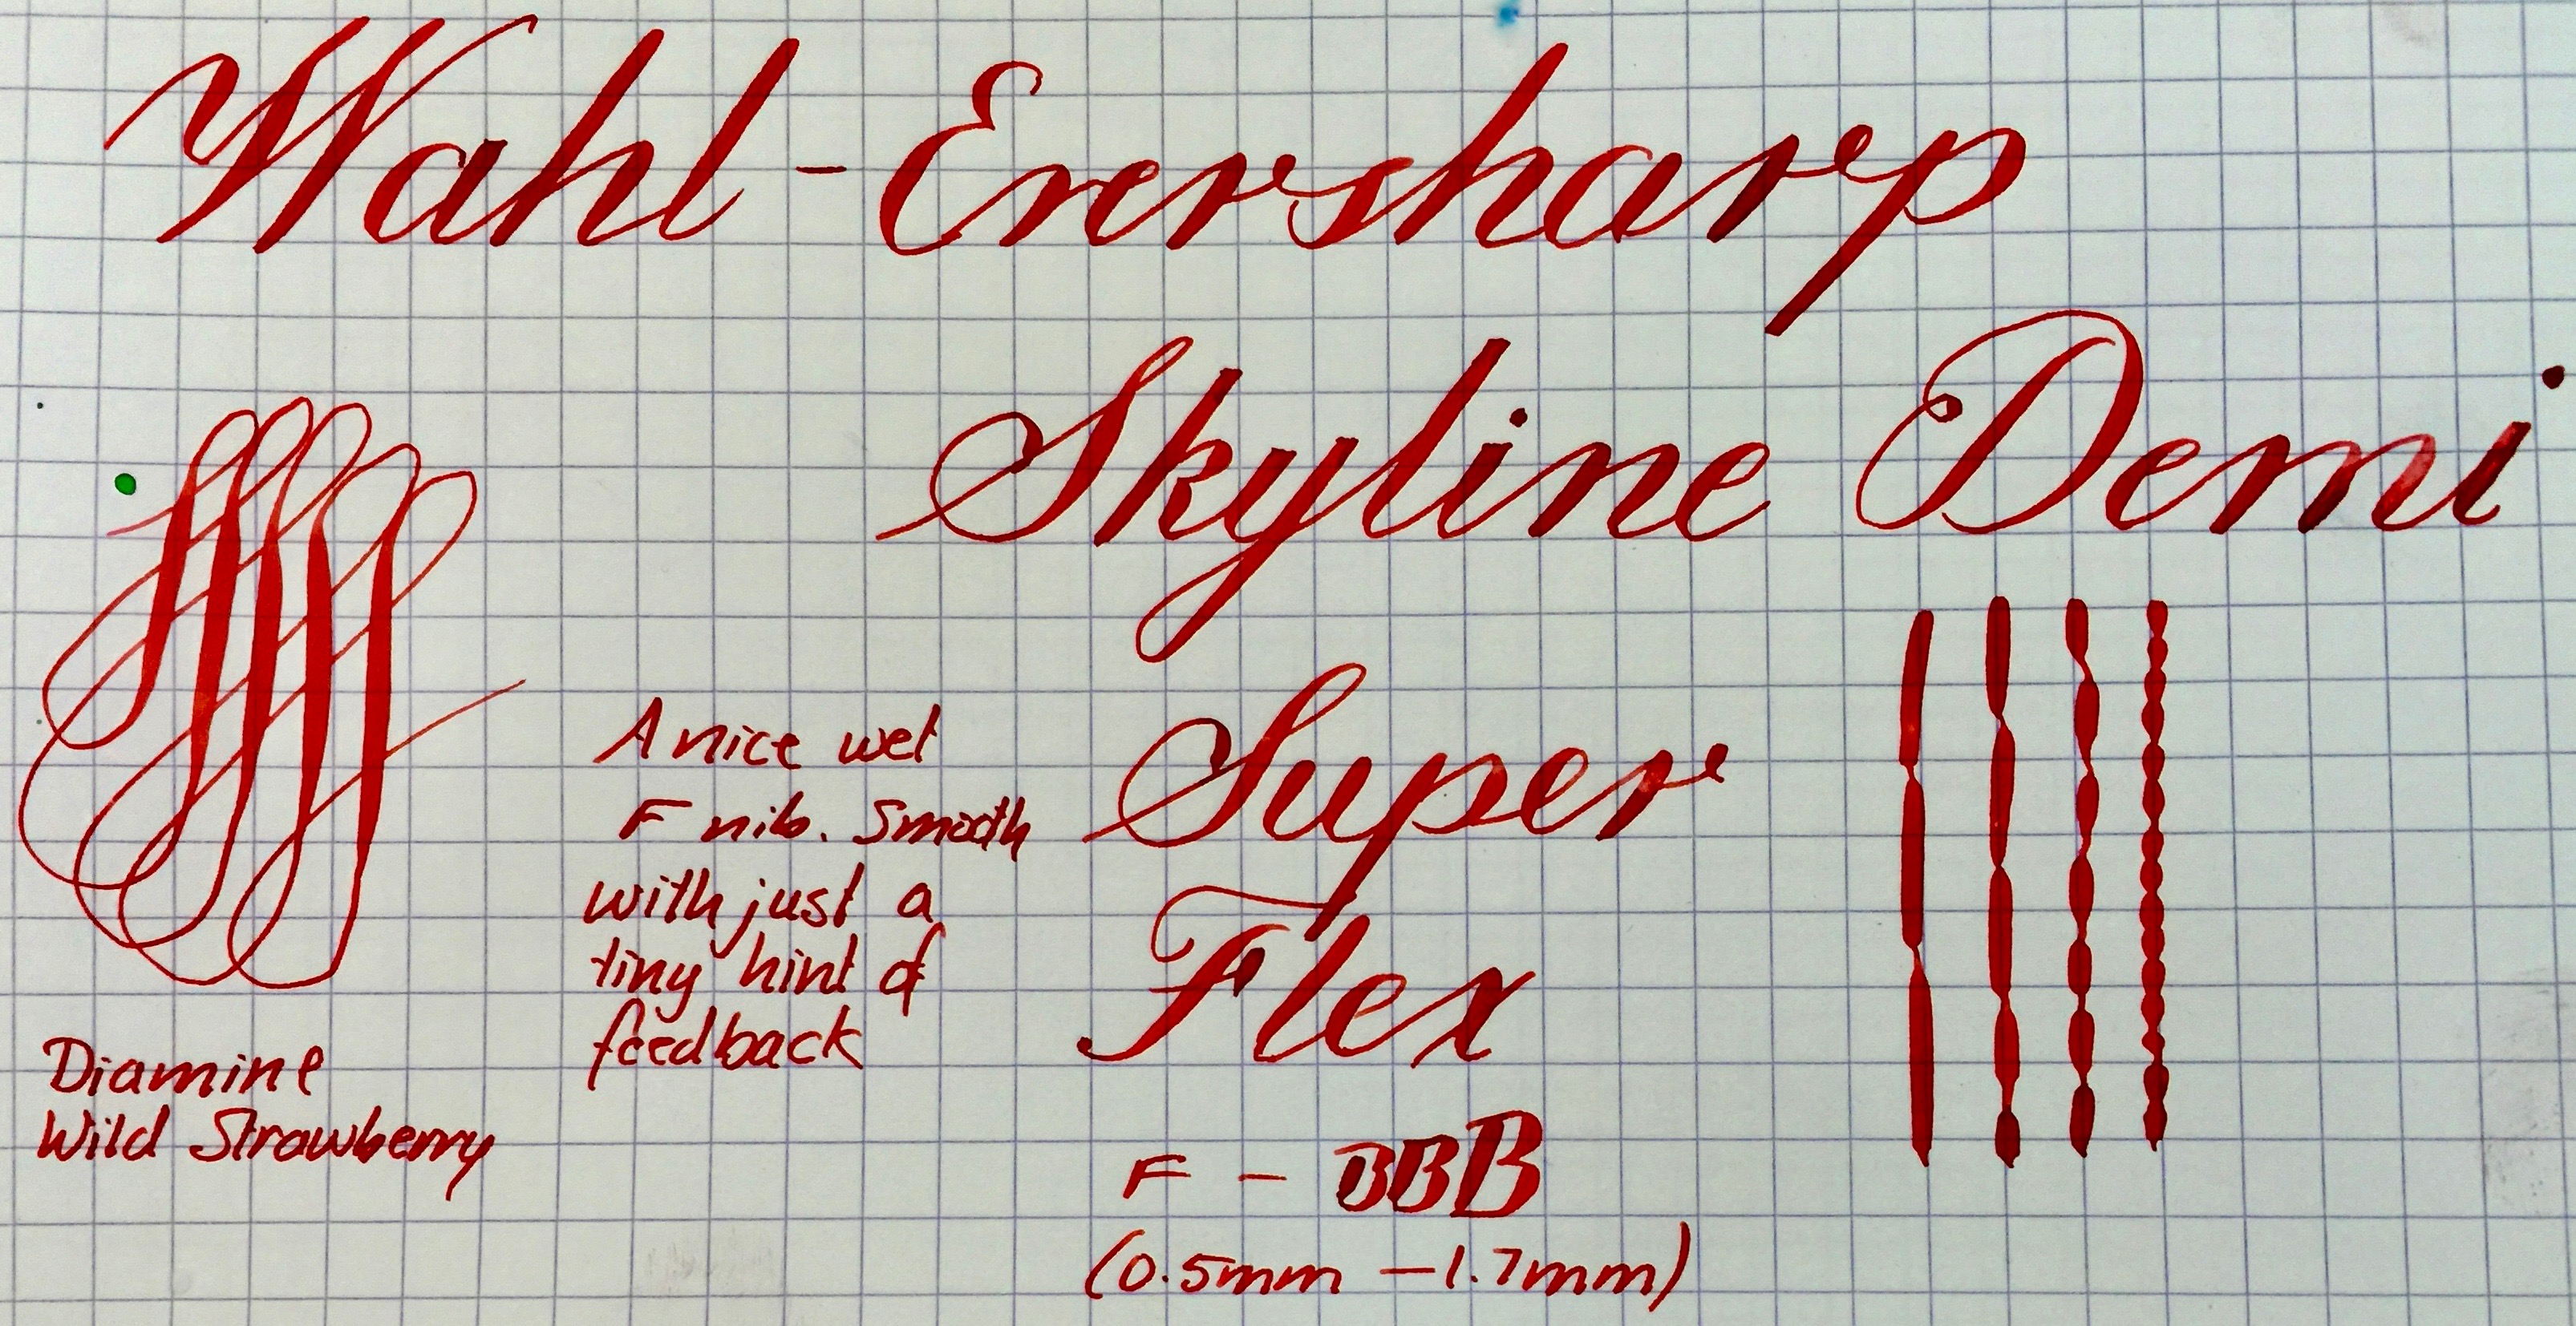 Wahl-Eversharp
Skyline Demi
Super
Flex
F - BBB
(0.5mm - 1.7mm)
A nice wet
F nib. Smooth
with just a
tiny hint of
feedback
Diamine
Wild Strawberry